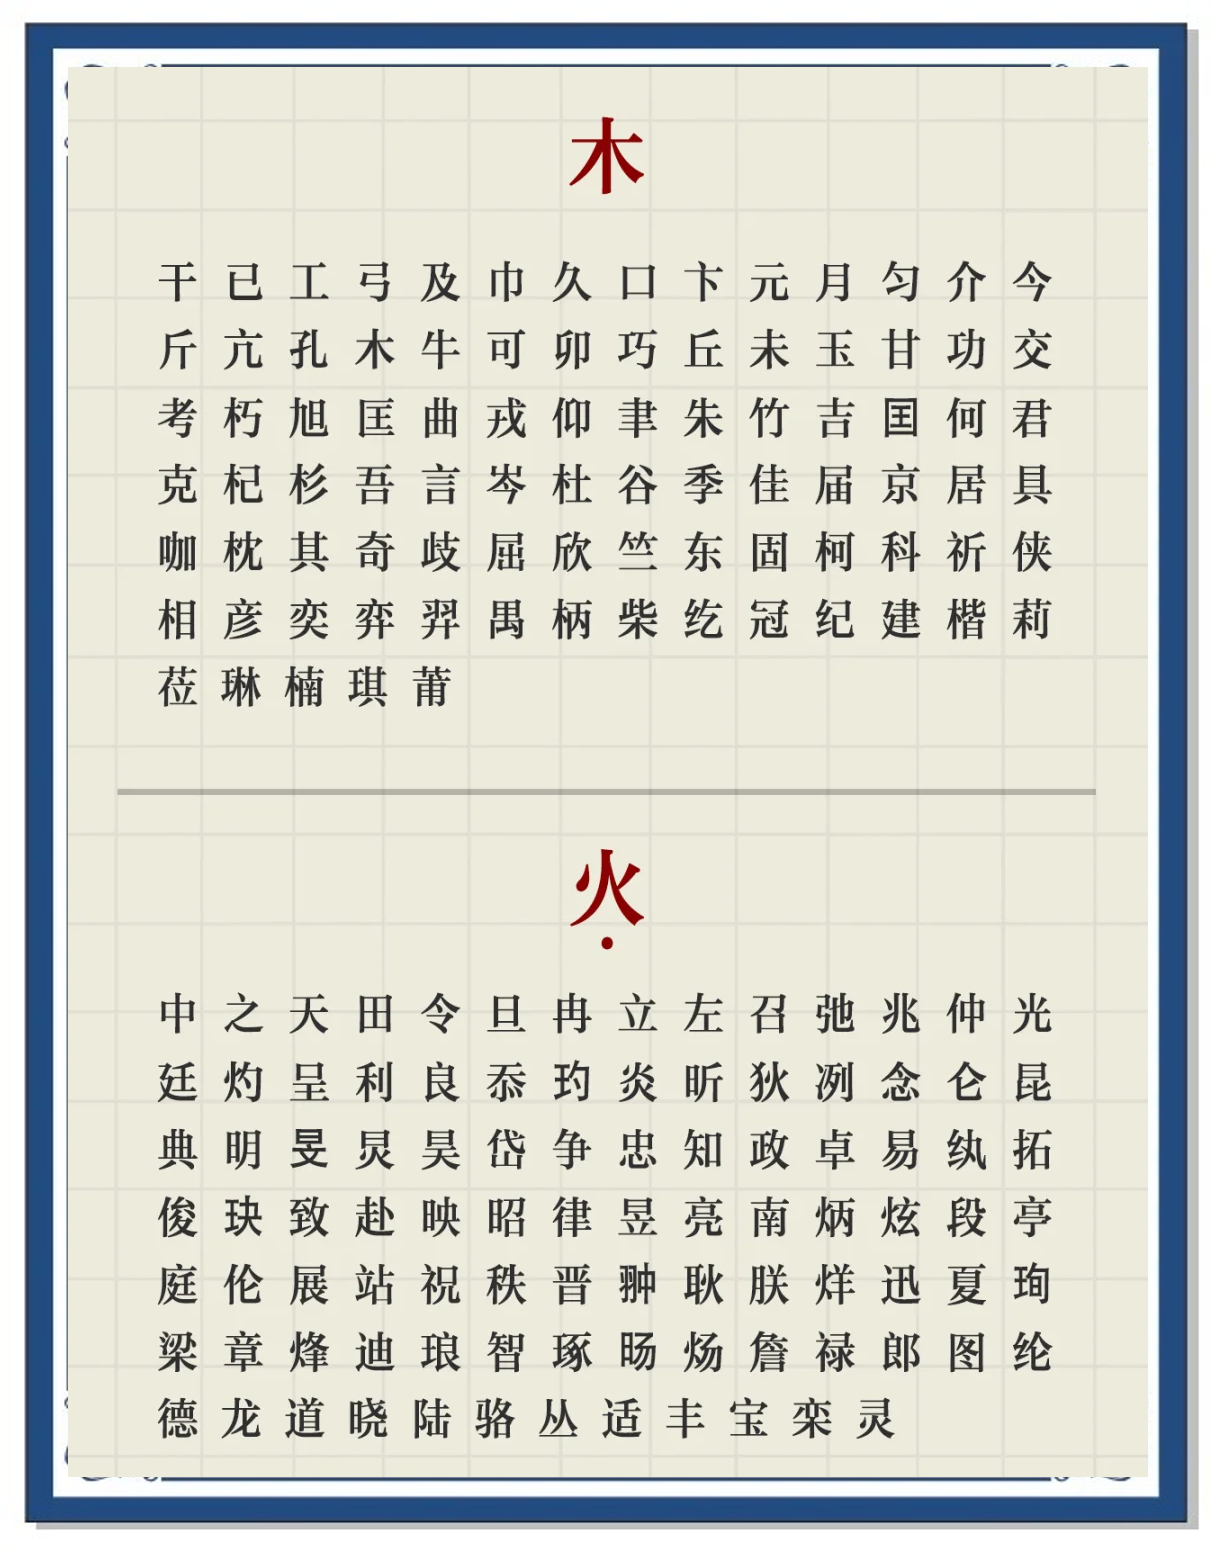 木
干 已 工 弓 及 巾 久 口 卞 元 月 匀 介 今
斤 亢 孔 木 牛 可 卯 巧 丘 未 玉 甘 功 交
考 朽 旭 匡 曲 戎 仰 聿 朱 竹 吉 囯 何 君
克 杞 杉 吾 言 岑 杜 谷 季 佳 届 京 居 具
咖 枕 其 奇 歧 屈 欣 竺 东 固 柯 科 祈 侠
相 彦 奕 弈 羿 禺 柄 柴 纥 冠 纪 建 楷 莉
莅 琳 楠 琪 莆
火
中 之 天 田 令 旦 冉 立 左 召 弛 兆 仲 光
廷 灼 呈 利 良 忝 玓 炎 昕 狄 冽 念 仑 昆
典 明 旻 炅 昊 岱 争 忠 知 政 卓 易 纨 拓
俊 玦 致 赴 映 昭 律 昱 亮 南 炳 炫 段 亭
庭 伦 展 站 祝 秩 晋 翀 耿 朕 烊 迅 夏 珣
梁 章 烽 迪 琅 智 琢 旸 炀 詹 禄 郎 图 纶
德 龙 道 晓 陆 骆 丛 适 丰 宝 栾 灵